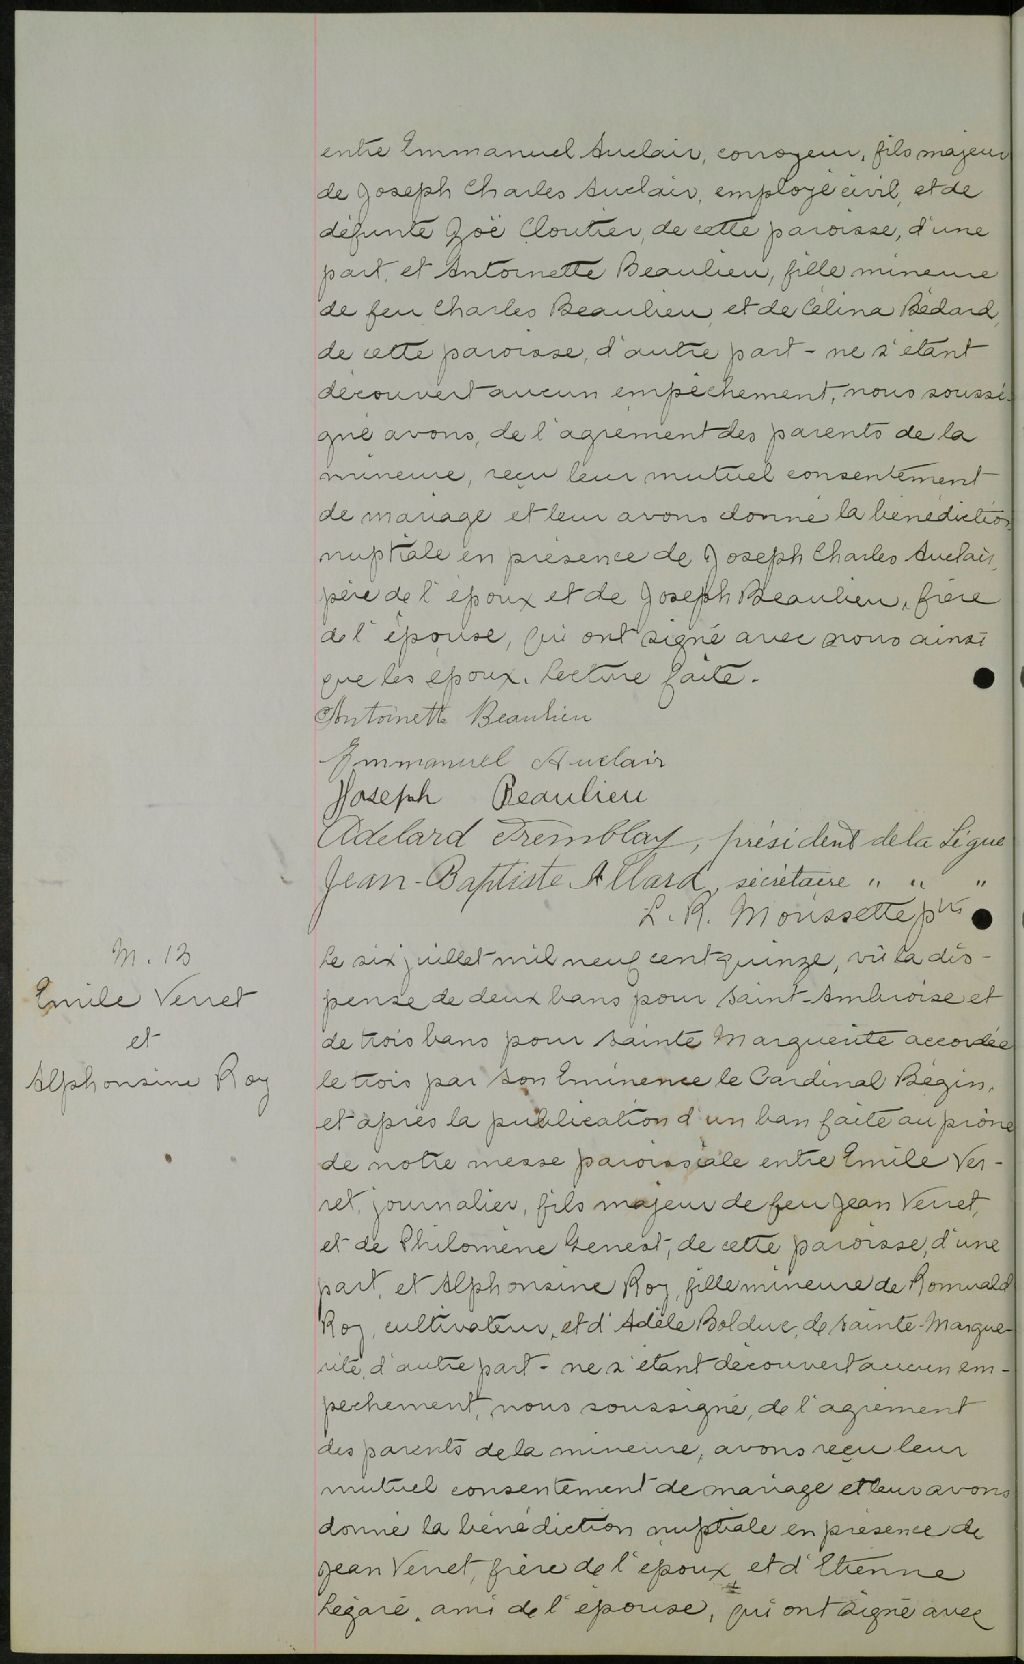 entre Emmanuel Auclair, corroyeur, fils majeur
de Joseph Charles Auclair, employé civil, et de
défunte Zoë Cloutier, de cette paroisse, d'une
part, et Antoinette Beaulieu, fille mineure
de feu Charles Beaulieu, et de Célina Bédard,
de cette paroisse, d'autre part - ne s'étant
découvert aucun empêchement, nous soussi-
gné avons, de l'agrément des parents de la
mineure, reçu leur mutuel consentement
de mariage et leur avons donné la bénédiction
nuptiale en présence de Joseph Charles Auclair,
père de l'époux et de Joseph Beaulieu, frère
de l'épouse, qui ont signé avec nous ainsi
que les époux. Lecture faite.
Antoinette Beaulieu
Emmanuel Auclair
Joseph Beaulieu
Adelard Tremblay, président de la Ligue
Jean-Baptiste Allard, sécrétaire " " "
L. R. Moussette ptre
M. 13
Emile Verret
et
Alphonsine Roy
Le six juillet mil neuf cent quinze, vû la dis-
pense de deux bans pour Saint-Ambroise et
de trois bans pour Sainte Marguerite accordée
le trois par Son Eminence le Cardinal Bégin,
et après la publication d'un ban faite au prône
de notre messe paroissiale entre Emile Ver-
ret, journalier, fils majeur de feu Jean Verret,
et de Philomène Genest, de cette paroisse, d'une
part, et Alphonsine Roy, fille mineure de Romuald
Roy, cultivateur, et d'Adèle Bolduc, de Sainte-Margue-
rite, d'autre part - ne s'étant découvert aucun em-
pechement, nous soussigné, de l'agrément
des parents de la mineure, avons reçu leur
mutuel consentement de mariage et leur avons
donné la bénédiction nuptiale en présence de
Jean Verret, frère de l'époux et d'Etienne
Légaré, ami de l'épouse, qui ont signé avec